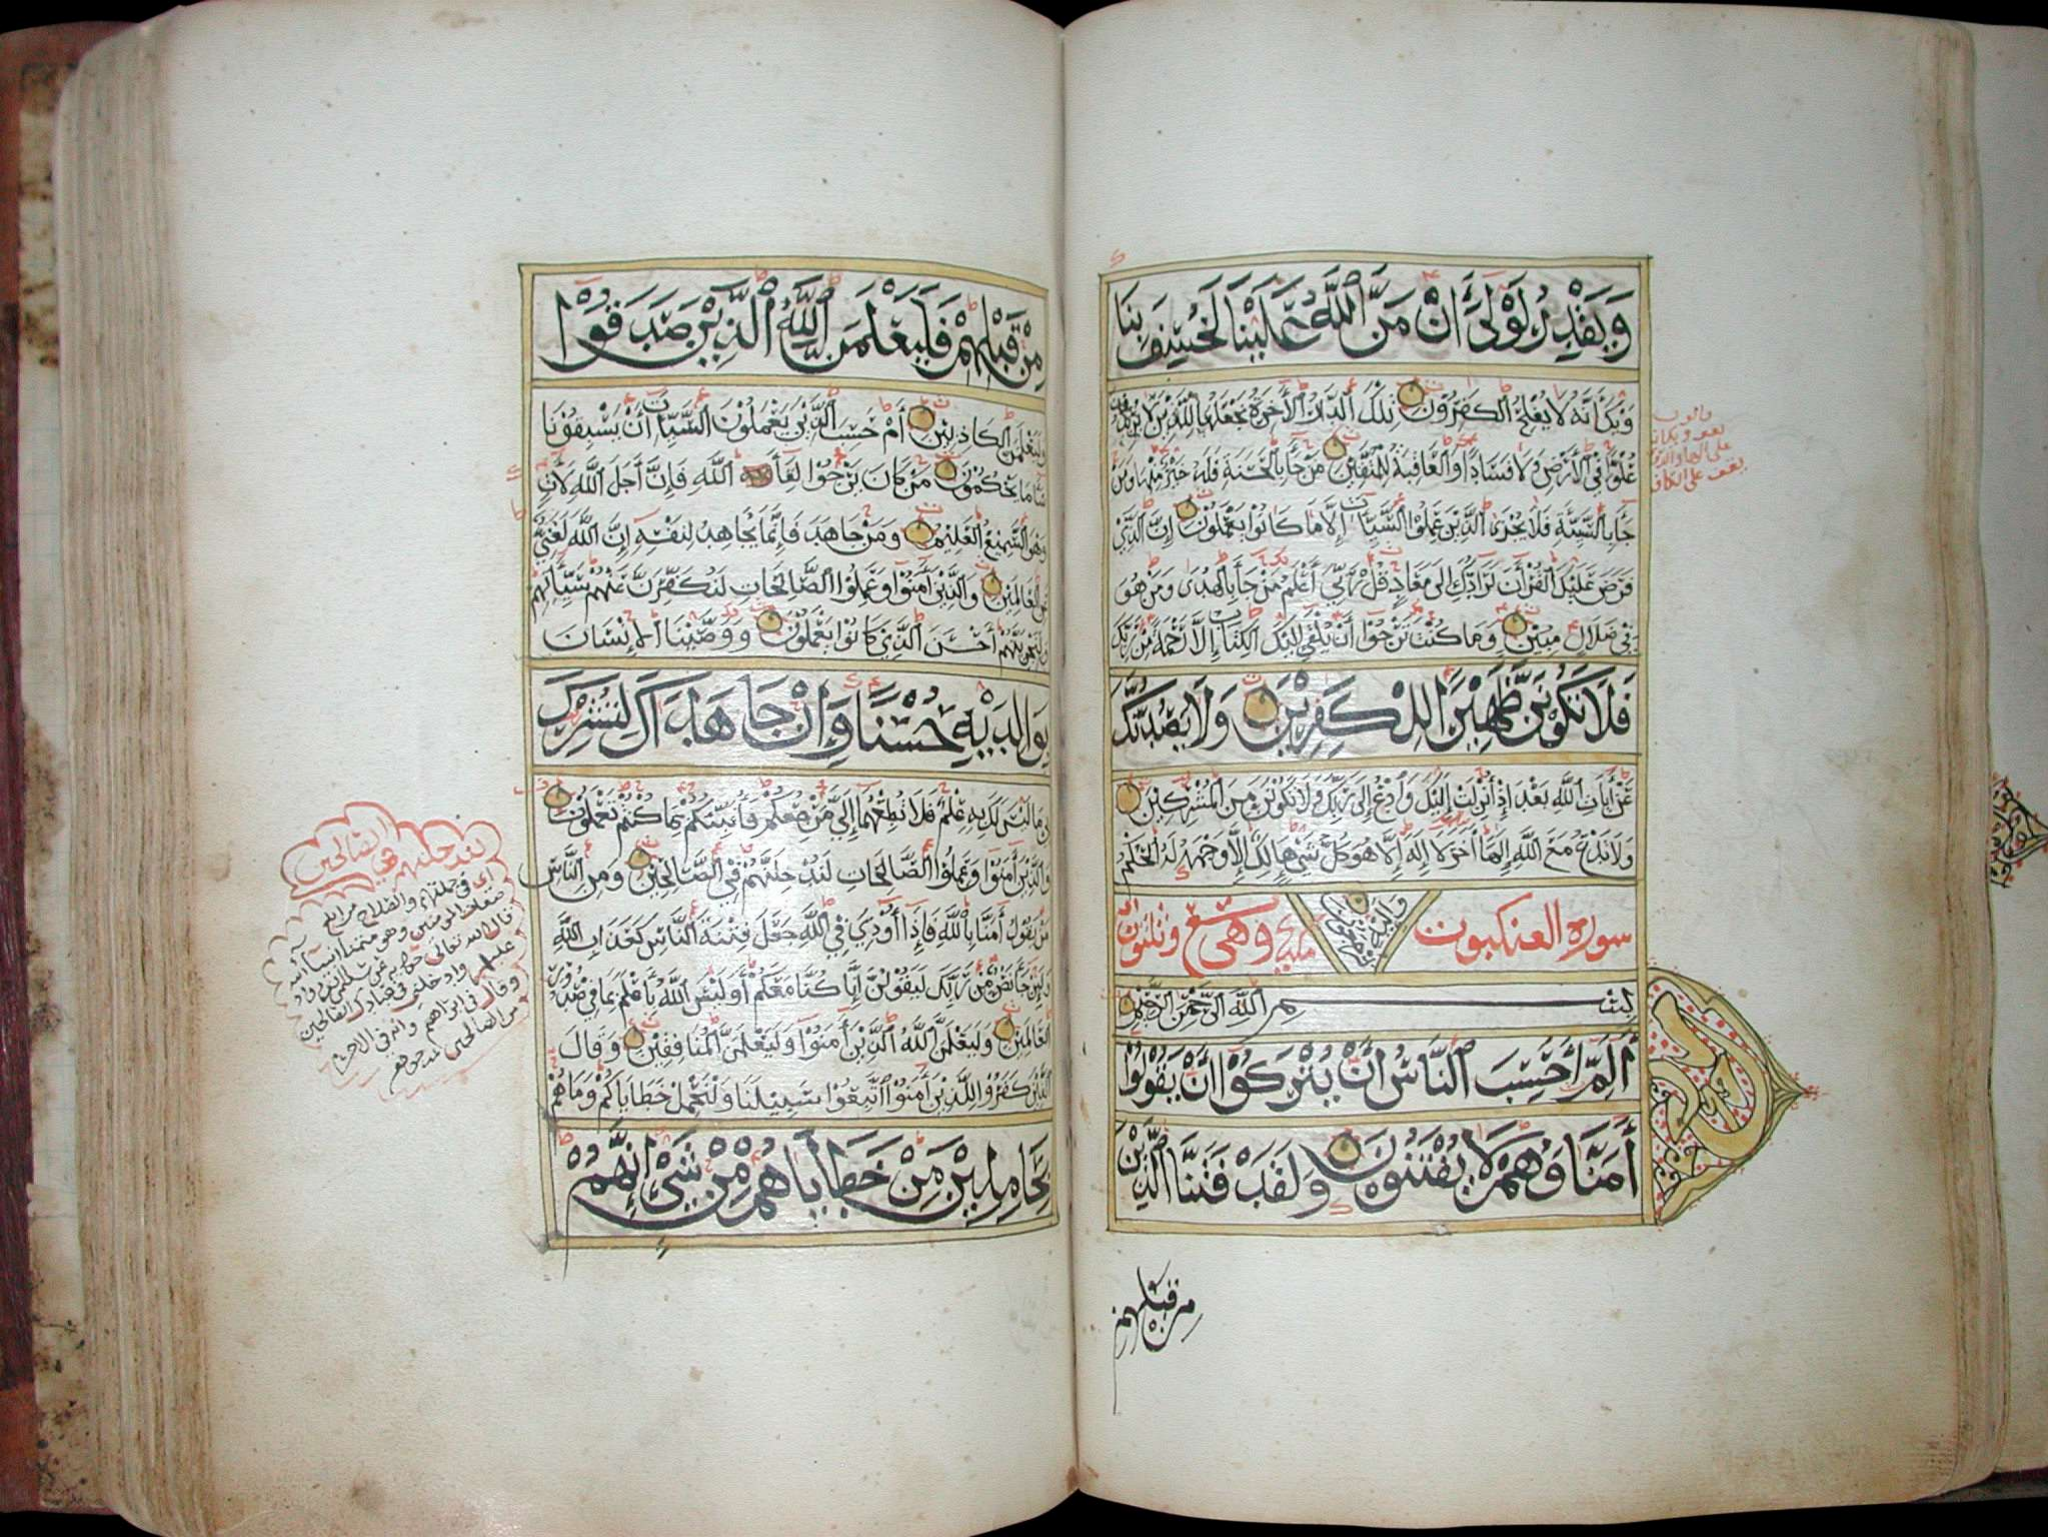 وَيَقْدِرُ لَوْلَا أَنْ مَنَّ اللَّهُ عَلَيْنَا لَخَسَفَ بِنَا
وَيْكَأَنَّهُ لَا يُفْلِحُ الْكَافِرُونَ تِلْكَ الدَّارُ الْآخِرَةُ نَجْعَلُهَا لِلَّذِينَ لَا يُرِيدُونَ
عُلُوًّا فِي الْأَرْضِ وَلَا فَسَادًا وَالْعَاقِبَةُ لِلْمُتَّقِينَ مَنْ جَاءَ بِالْحَسَنَةِ فَلَهُ خَيْرٌ مِنْهَا وَمَنْ
جَاءَ بِالسَّيِّئَةِ فَلَا يُجْزَى الَّذِينَ عَمِلُوا السَّيِّئَاتِ إِلَّا مَا كَانُوا يَعْمَلُونَ إِنَّ الَّذِي
فَرَضَ عَلَيْكَ الْقُرْآنَ لَرَادُّكَ إِلَى مَعَادٍ قُلْ رَبِّي أَعْلَمُ مَنْ جَاءَ بِالْهُدَى وَمَنْ هُوَ
فِي ضَلَالٍ مُبِينٍ وَمَا كُنْتَ تَرْجُوا أَنْ يُلْقَى إِلَيْكَ الْكِتَابُ إِلَّا رَحْمَةً مِنْ رَبِّكَ
فَلَا تَكُونَنَّ ظَهِيرًا لِلْكَافِرِينَ وَلَا يَصُدُّنَّكَ
عَنْ آيَاتِ اللَّهِ بَعْدَ إِذْ أُنْزِلَتْ إِلَيْكَ وَادْعُ إِلَى رَبِّكَ وَلَا تَكُونَنَّ مِنَ الْمُشْرِكِينَ
وَلَا تَدْعُ مَعَ اللَّهِ إِلَهًا آخَرَ لَا إِلَهَ إِلَّا هُوَ كُلُّ شَيْءٍ هَالِكٌ إِلَّا وَجْهَهُ لَهُ الْحُكْمُ
وَإِلَيْهِ تُرْجَعُونَ
سورة العنكبوت مكية وهي تسع وستون
بِسْمِ اللَّهِ الرَّحْمَنِ الرَّحِيمِ
الم أَحَسِبَ النَّاسُ أَنْ يُتْرَكُوا أَنْ يَقُولُوا
آمَنَّا وَهُمْ لَا يُفْتَنُونَ وَلَقَدْ فَتَنَّا الَّذِينَ
من قبلهم
مِنْ قَبْلِهِمْ فَلَيَعْلَمَنَّ اللَّهُ الَّذِينَ صَدَقُوا
وَلَيَعْلَمَنَّ الْكَاذِبِينَ أَمْ حَسِبَ الَّذِينَ يَعْمَلُونَ السَّيِّئَاتِ أَنْ يَسْبِقُونَا
سَاءَ مَا يَحْكُمُونَ مَنْ كَانَ يَرْجُوا لِقَاءَ اللَّهِ فَإِنَّ أَجَلَ اللَّهِ لَآتٍ
وَهُوَ السَّمِيعُ الْعَلِيمُ وَمَنْ جَاهَدَ فَإِنَّمَا يُجَاهِدُ لِنَفْسِهِ إِنَّ اللَّهَ لَغَنِيٌّ
عَنِ الْعَالَمِينَ وَالَّذِينَ آمَنُوا وَعَمِلُوا الصَّالِحَاتِ لَنُكَفِّرَنَّ عَنْهُمْ سَيِّئَاتِهِمْ
وَلَنَجْزِيَنَّهُمْ أَحْسَنَ الَّذِي كَانُوا يَعْمَلُونَ وَوَصَّيْنَا الْإِنْسَانَ
بِوَالِدَيْهِ حُسْنًا وَإِنْ جَاهَدَاكَ لِتُشْرِكَ
بِي مَا لَيْسَ لَكَ بِهِ عِلْمٌ فَلَا تُطِعْهُمَا إِلَيَّ مَرْجِعُكُمْ فَأُنَبِّئُكُمْ بِمَا كُنْتُمْ تَعْمَلُونَ
وَالَّذِينَ آمَنُوا وَعَمِلُوا الصَّالِحَاتِ لَنُدْخِلَنَّهُمْ فِي الصَّالِحِينَ وَمِنَ النَّاسِ
مَنْ يَقُولُ آمَنَّا بِاللَّهِ فَإِذَا أُوذِيَ فِي اللَّهِ جَعَلَ فِتْنَةَ النَّاسِ كَعَذَابِ اللَّهِ
وَلَئِنْ جَاءَ نَصْرٌ مِنْ رَبِّكَ لَيَقُولُنَّ إِنَّا كُنَّا مَعَكُمْ أَوَلَيْسَ اللَّهُ بِأَعْلَمَ بِمَا فِي صُدُورِ
الْعَالَمِينَ وَلَيَعْلَمَنَّ اللَّهُ الَّذِينَ آمَنُوا وَلَيَعْلَمَنَّ الْمُنَافِقِينَ وَقَالَ
الَّذِينَ كَفَرُوا لِلَّذِينَ آمَنُوا اتَّبِعُوا سَبِيلَنَا وَلْنَحْمِلْ خَطَايَاكُمْ وَمَا هُمْ
بِحَامِلِينَ مِنْ خَطَايَاهُمْ مِنْ شَيْءٍ إِنَّهُمْ
لندخلنهم في الصالحين
اى في جملتهم والصلاح من ابلغ
صفات المؤمنين وهو متمنى انبياء الله
قال الله تعالى حكاية عن سليمان
عليهم وادخلني في عبادك الصالحين
وقال في ابراهيم وانه في الاخرة
من الصالحين